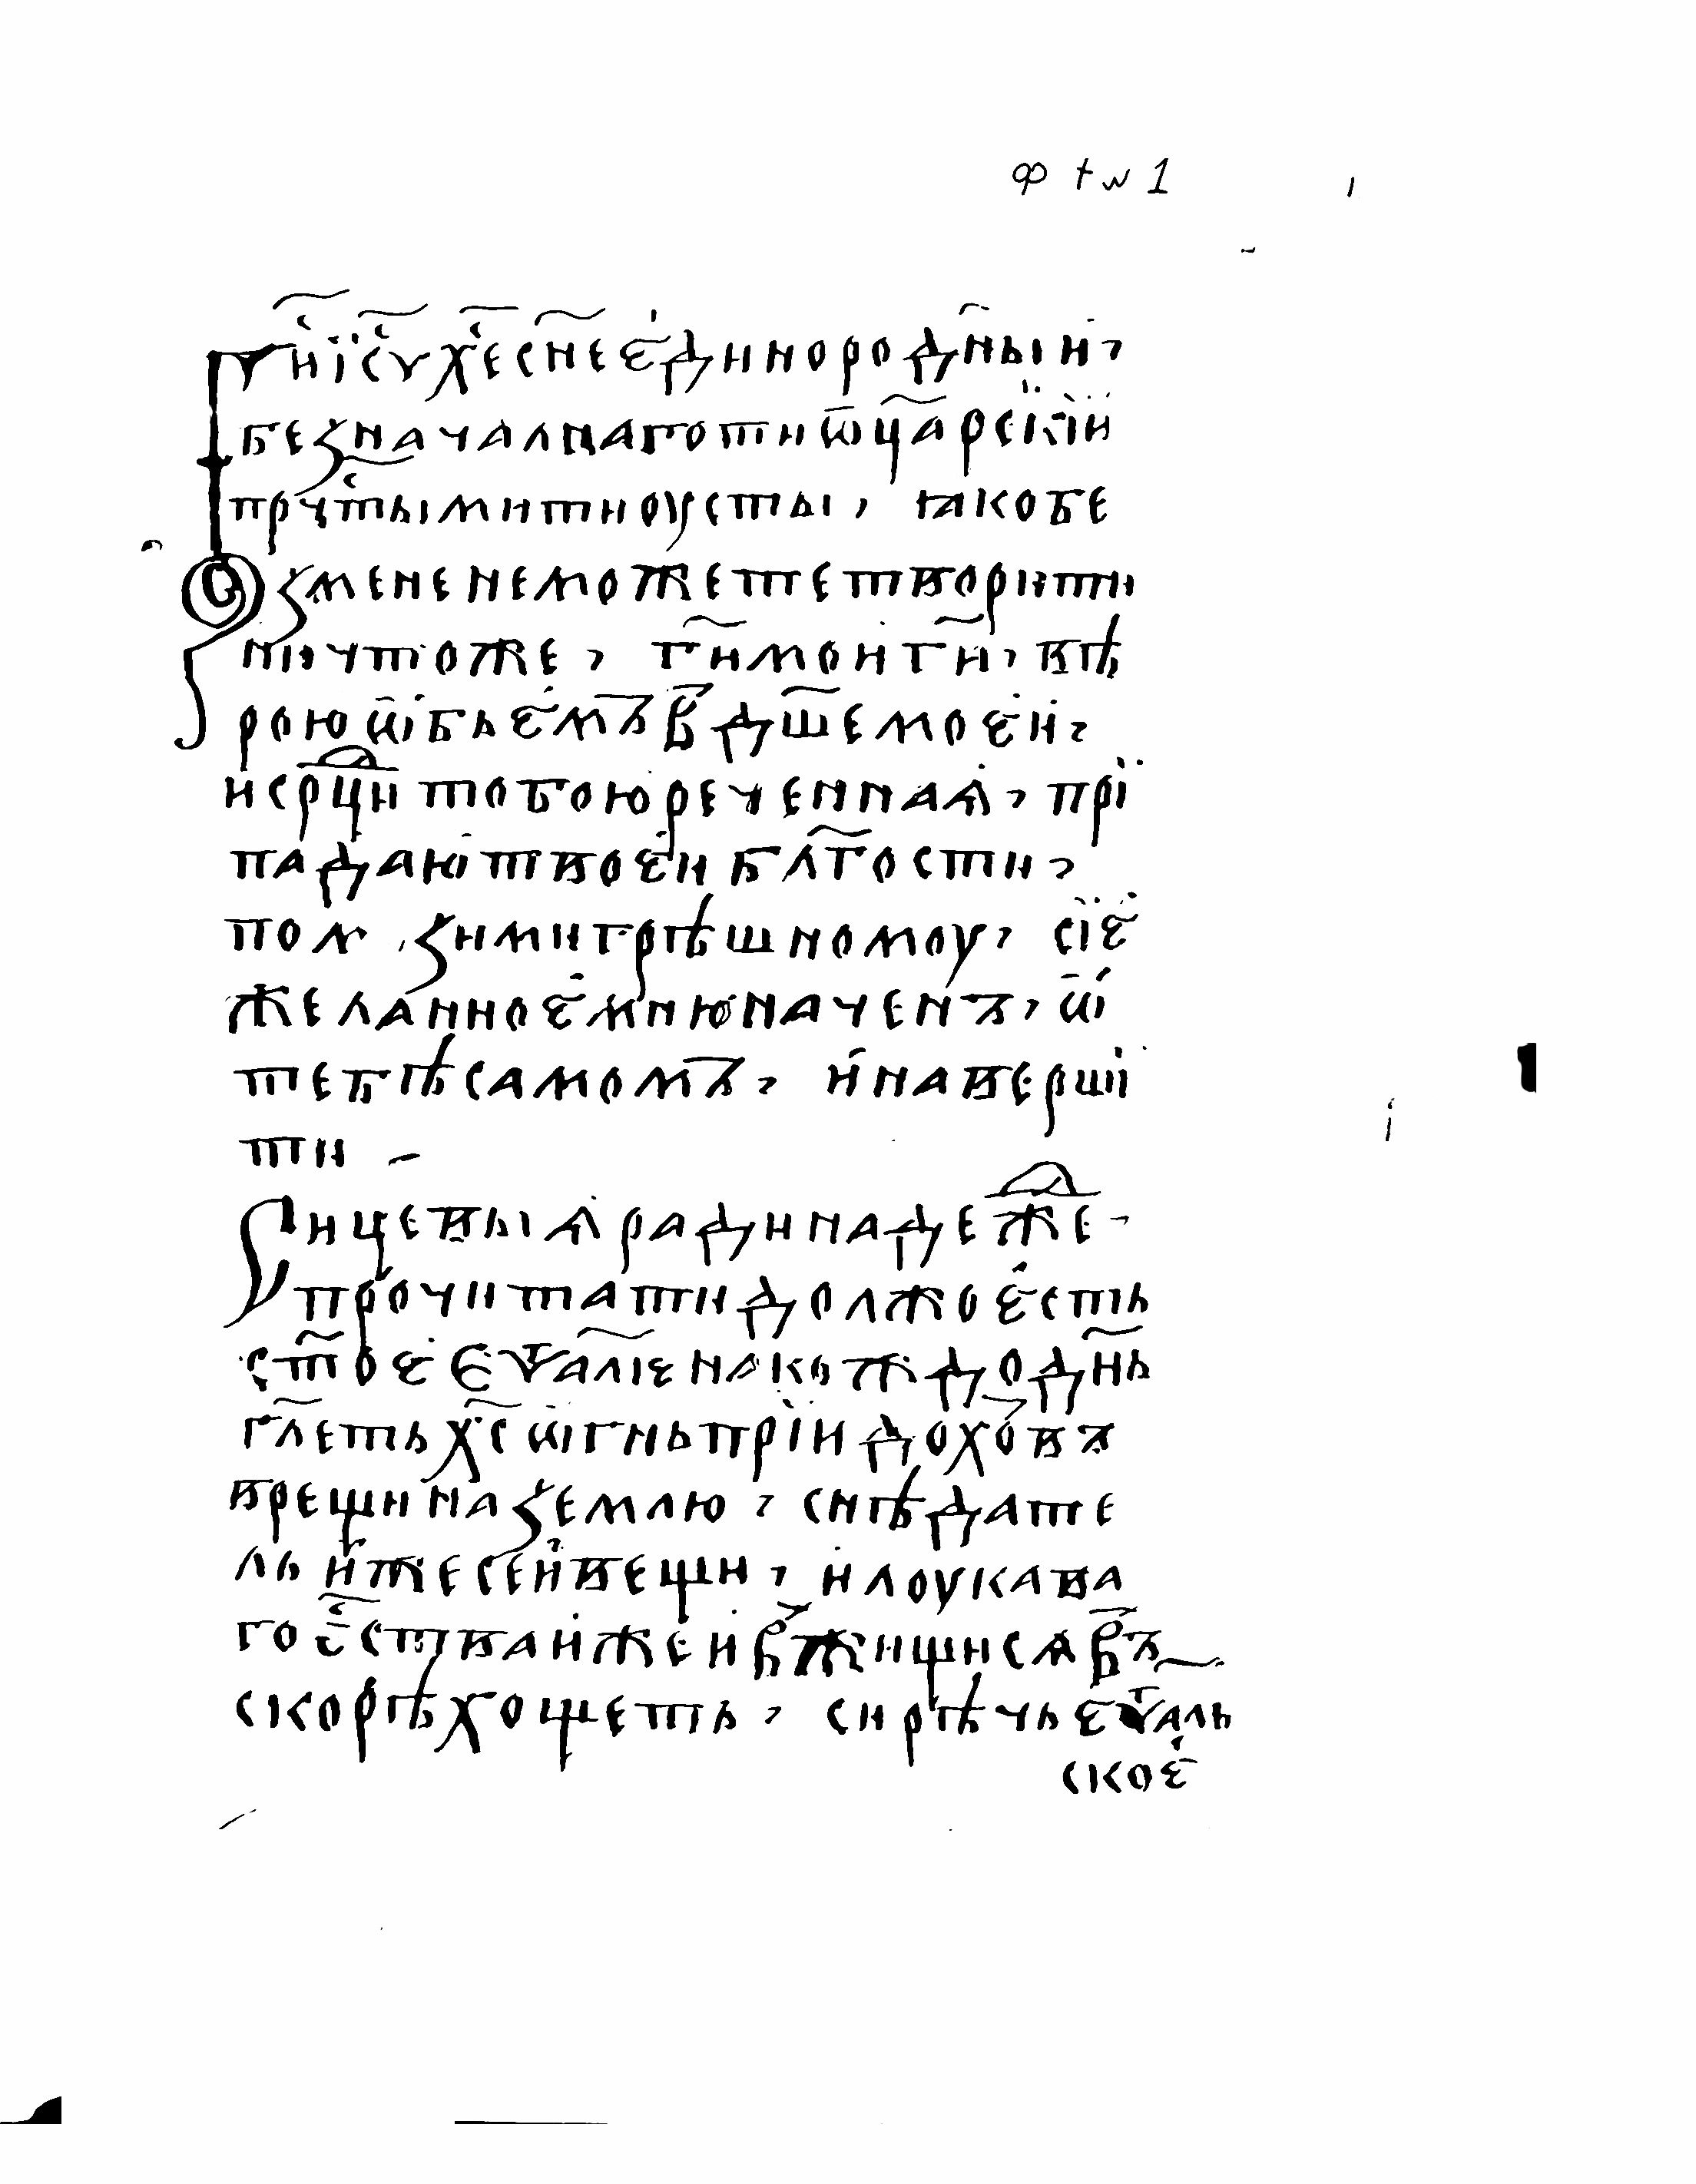 ф t w 1
Гн҃и ї҃су хе҃ сн҃е є҆динородн҃ыи,
безначалнаготи ѿц҃а рекїи
прч҃тымитиоусты, ꙗкобе
зменеможететворити
ничтоже, гн҃ мои гн҃, вѣ
рою ѡ҆бьємъ вд҃шемоєи,
исрд҃циитобоюреченнаѧ, прї
падаютвоєи бл҃гости,
помꙁимигрѣшномоу, сїє
желанноємноюначенъ, ѡ҆
тебѣсамомъ, и҆наверши
ти
Сицевыѧрадинадеждже
прочитатидолжоєсть
ст҃оє Єѵа҃лїенакождодн҃ь
гл҃етьхс҃ ѡ҆гньпрїидоховъ
врещиназемлю, снѣдате
льи҆жесейвещи, и҆лоукава
гос҃стваи҆жеи҆вжищисѧвъ
скорѣхощеть, сирѣчьєѵа҃ль
скоє